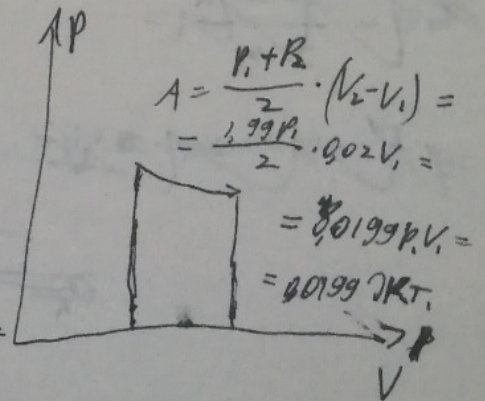 P
A = (P₁ + P₂)/2 · (V₂ - V₁) =
= 1,99P₁/2 · 0,02V₁ =
= 0,0199P₁V₁ =
= 0,0199 JRT₁
V